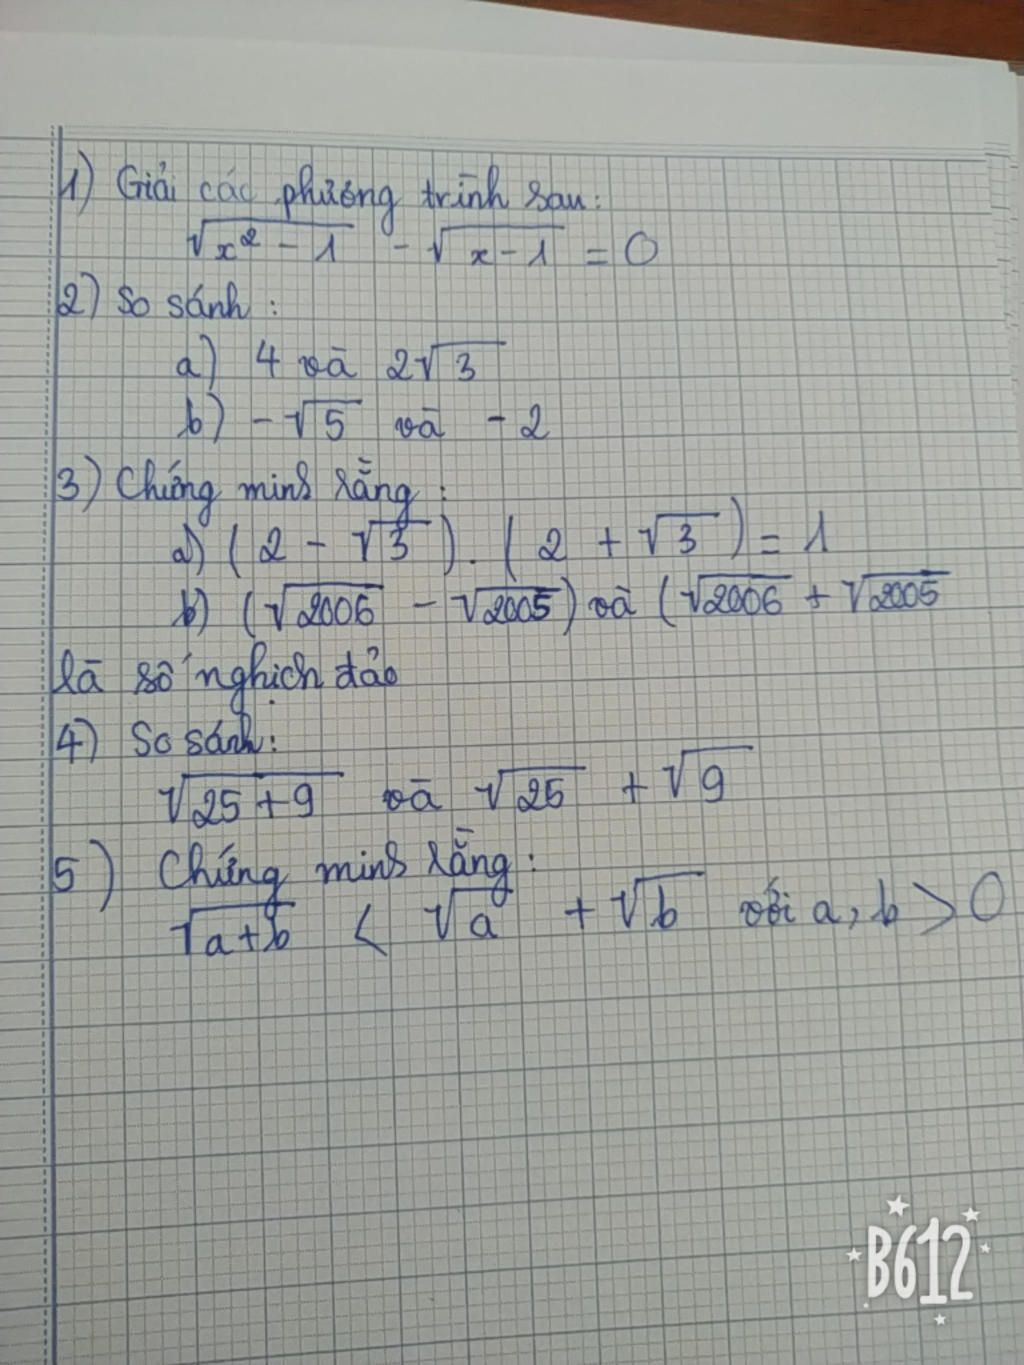 1) Giải các phương trình sau:
√(x² - 1) - √(x - 1) = 0
2) So sánh :
a) 4 và 2√3
b) -√5 và - 2
3) Chứng minh rằng :
a) ( 2 - √3 ) . ( 2 + √3 ) = 1
b) (√2006 - √2005) và (√2006 + √2005
là số nghịch đảo
4) So sánh:
√(25 + 9) và √25 + √9
5) Chứng minh rằng :
√(a+b) < √a + √b với a, b > 0
B612